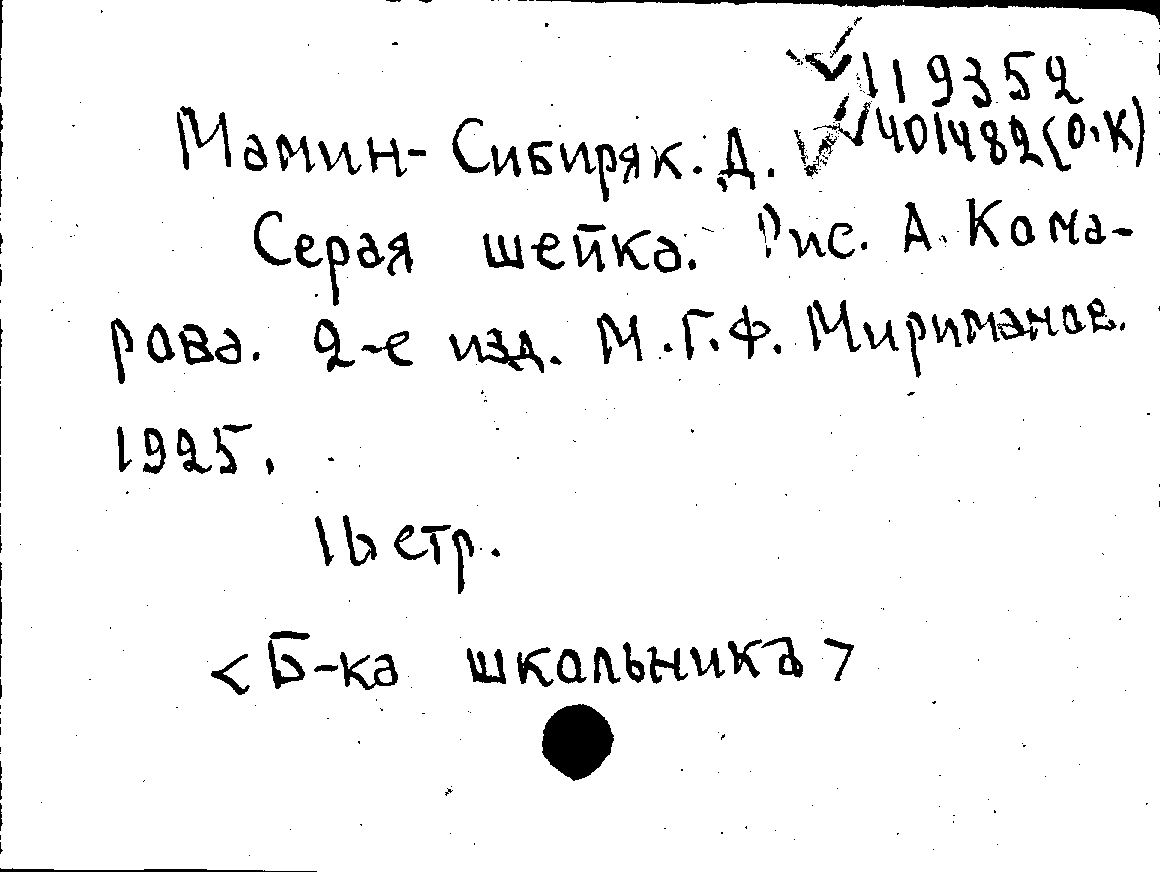 119352
401482(О.К)
Мамин-Сибиряк. Д.
Серая шейка. Рис. А. Кома-
рова. 2-е изд. М. Г.Ф. Мириманов.
1925.
16 стр.
<Б-ка школьника>